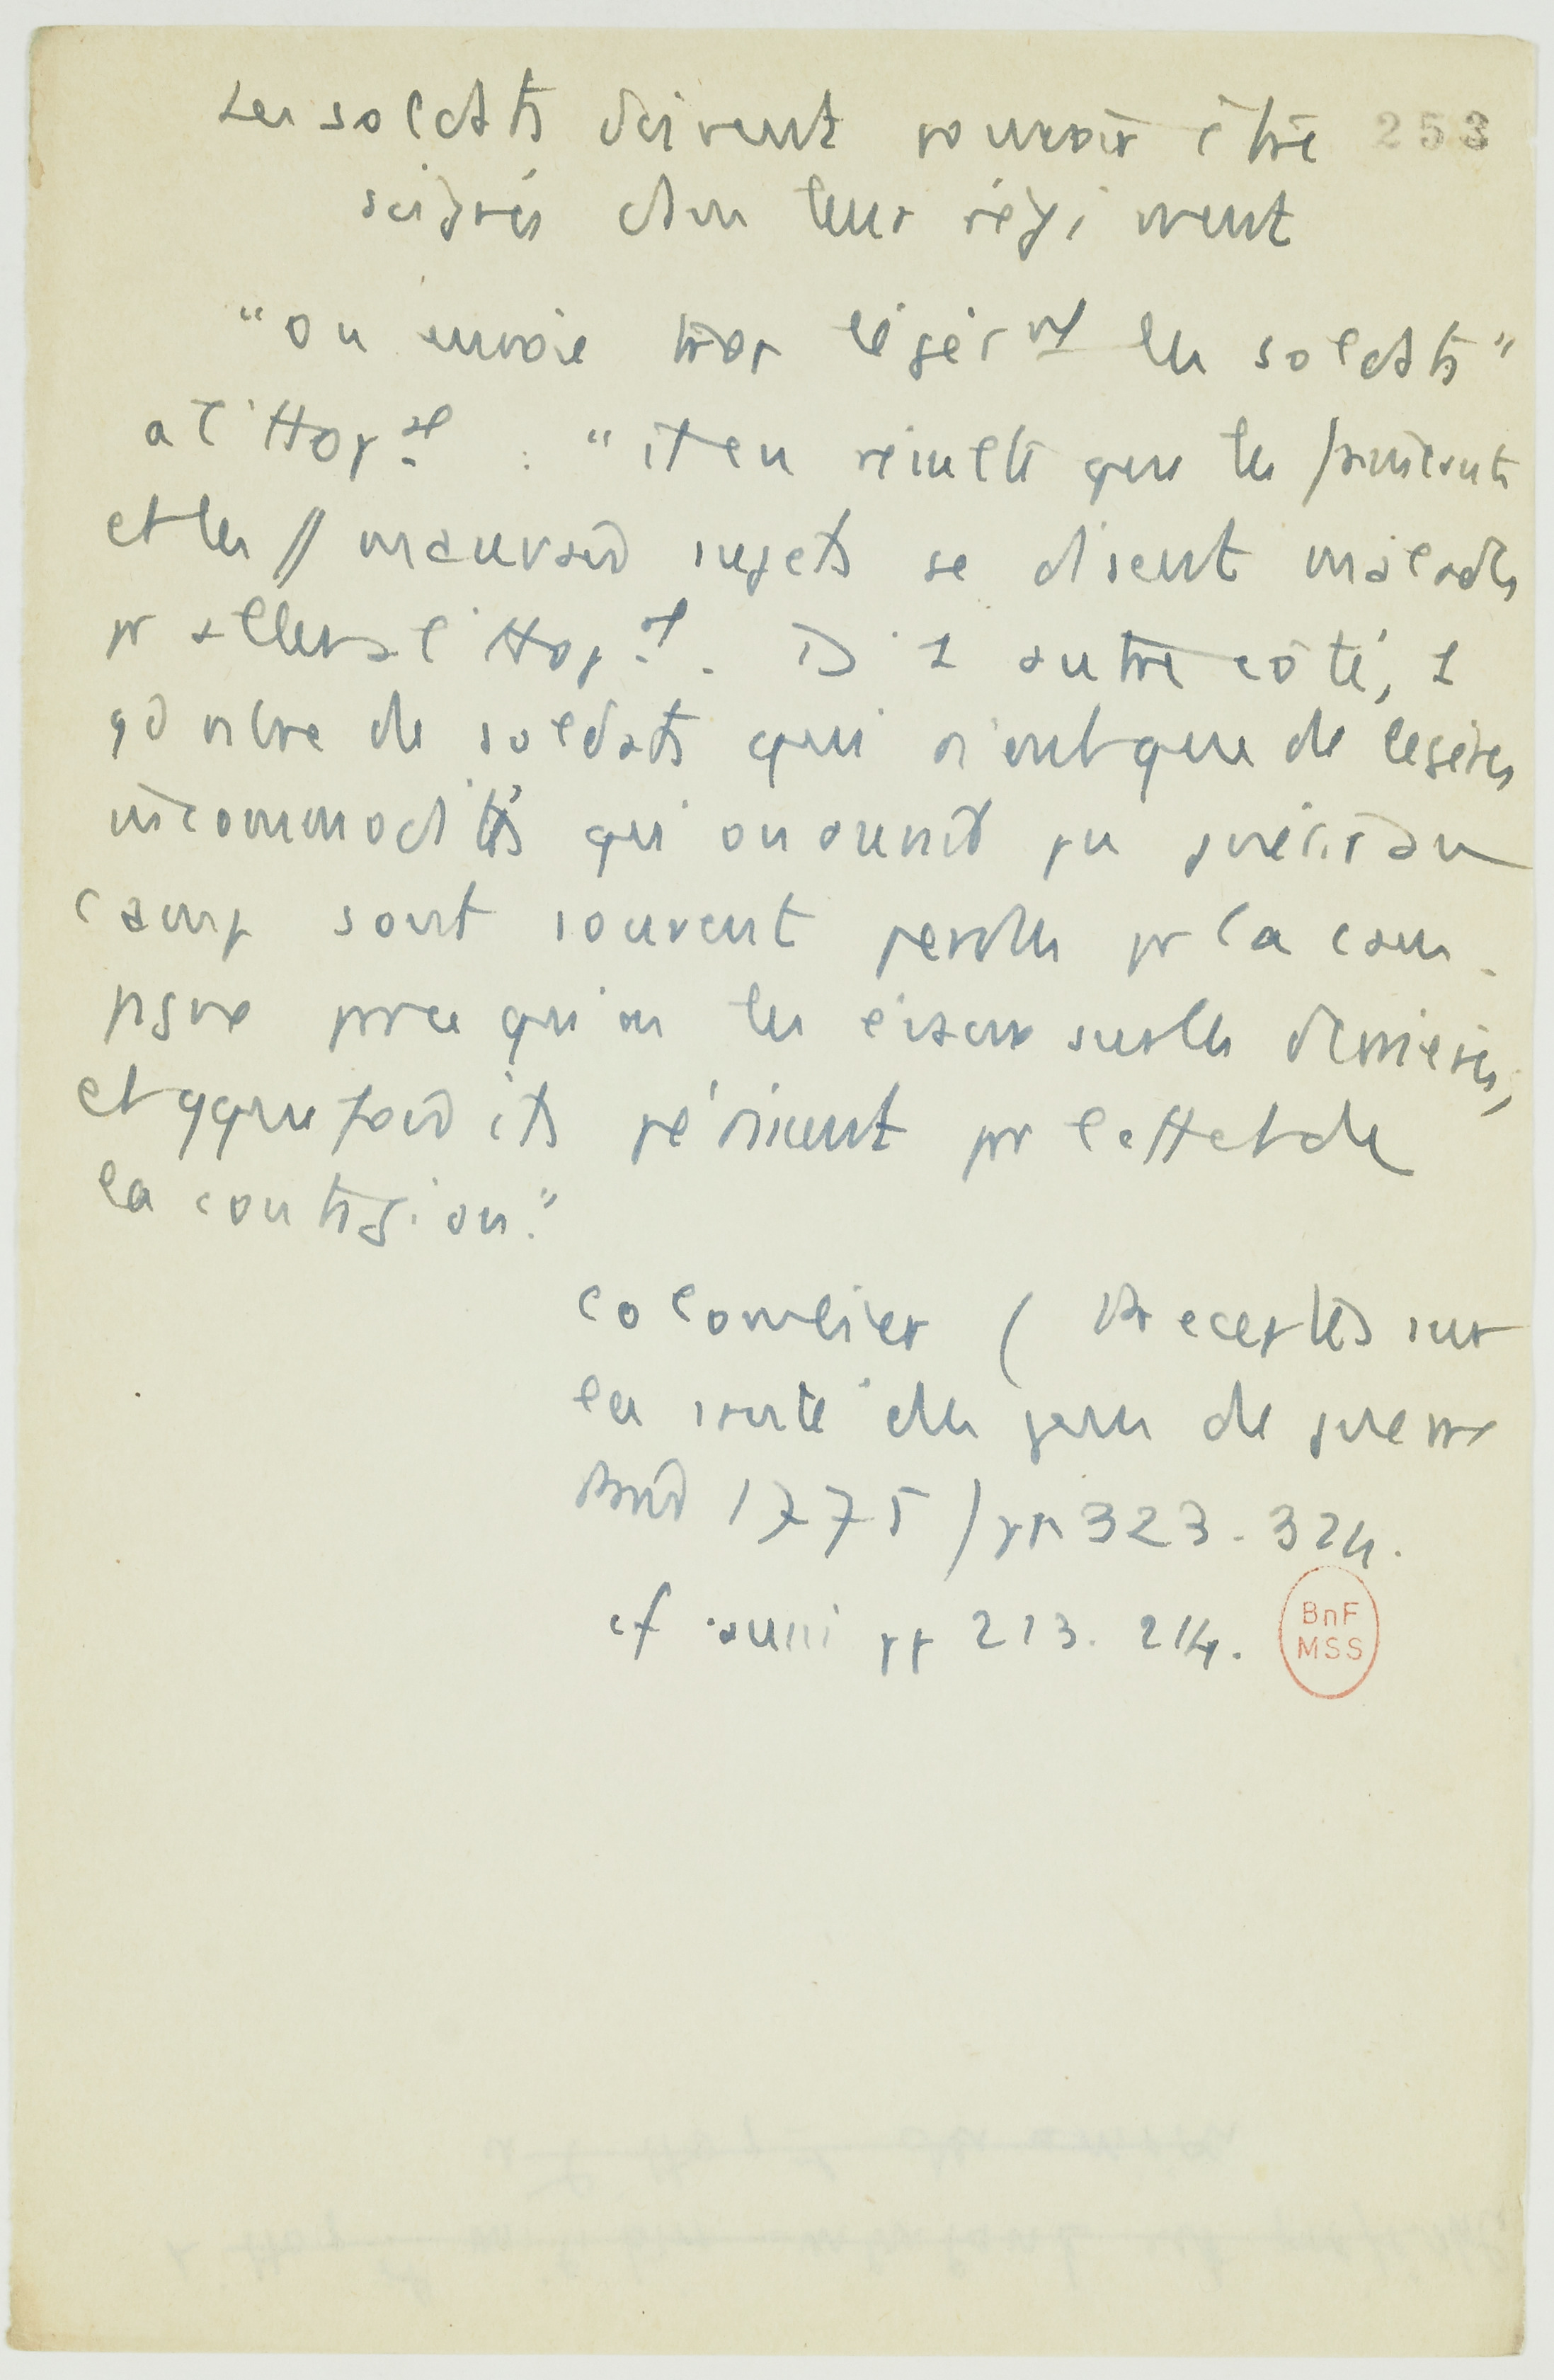 Les soldats doivent pouvoir être 253
soignés dans leur régiment
"on envoie trop légèrmt les soldats"
a l'Hopal : "il en résulte que les fainéants
et les // mauvais sujets se disent malades
pr aller a l'Hopal. D'1 autre côté, 1
gd nbre de soldats qui n'ont que de legères
incommodités qu'on aurait pu guérir au
camp sont souvent perdus pr la cam-
pagne parce qu'on les laisse sur les derrières,
et qquefois ils périssent pr l'effet de
la contagion."
Colombier (Preceptes sur
la santé des gens de guerre
Paris 1775) pp 323-324.
cf aussi pp 213-214.
BnF
MSS